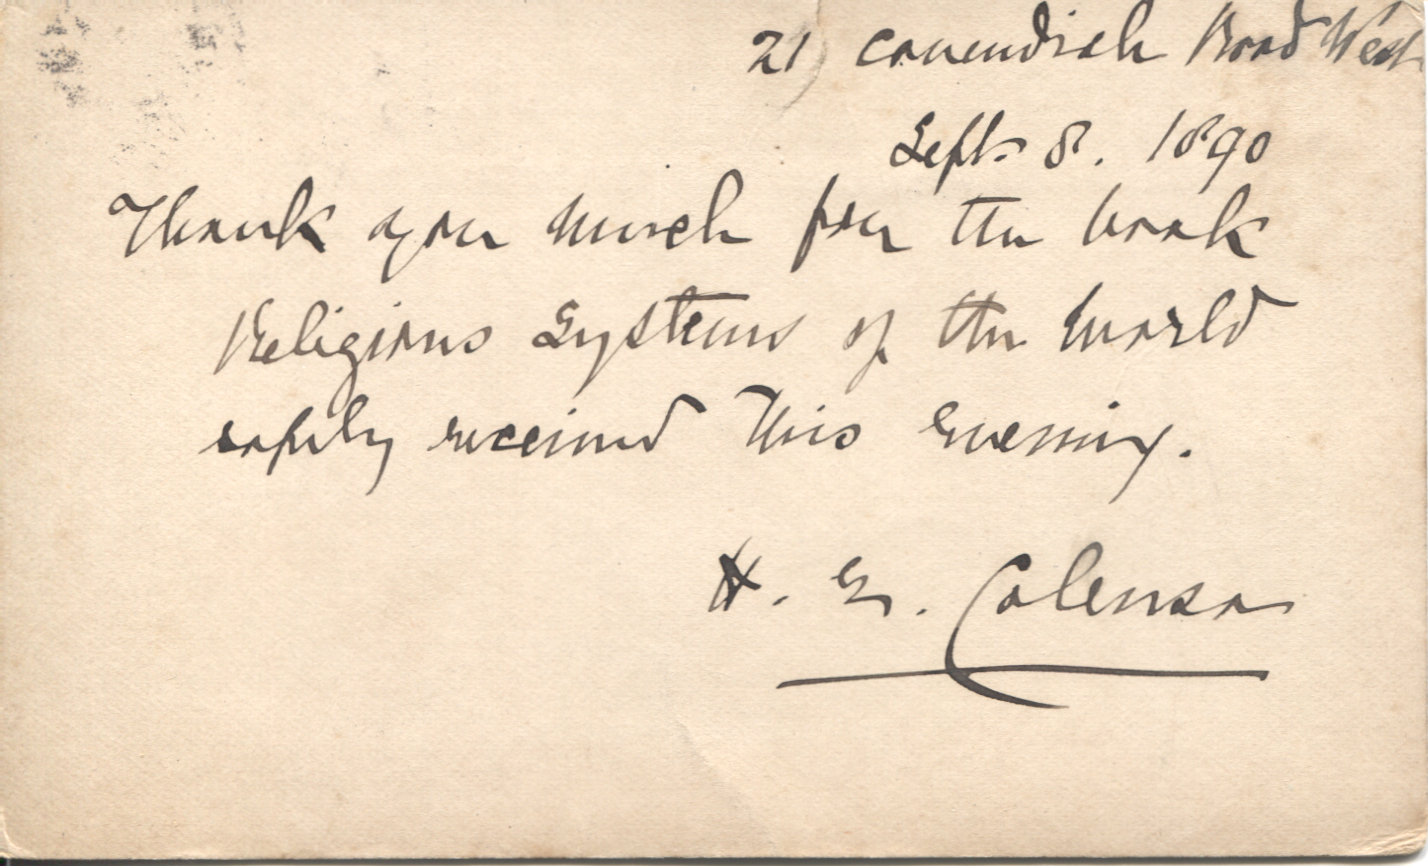 21 Cavendish Road West
Sept. 8. 1890
Thank you much for the book
Religious Systems of the World
safely received this evening.
H. E. Colenso